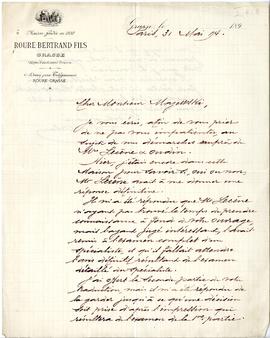 Maison fondée en 1820
ROURE-BERTRAND FILS
GRASSE
Adresse pour Télégrammes
ROURE-GRASSE
Grasse, le 189
Paris, 31 Mai 94.
Cher Monsieur
Je vous écris, afin de vous prier
de ne pas vous impatienter au
sujet de mes démarches auprès de
MM. Lecène & Oudin.
Hier, j'étais encore dans cette
Maison pour savoir si, oui ou non,
Mr Lecène avait à me donner une
réponse définitive.
Il m'a été répondu que Mr Lecène
n'ayant pas trouvé le temps de prendre
connaissance à fond de votre ouvrage
mais l'ayant jugé intéressant, l'avait
remis à l'examen complet d'un
spécialiste, et qu'il fallait attendre
le résultat de l'examen
détaillé du spécialiste.
J'ai offert la seconde partie de votre
traduction, mais il m'a été répondu de
la garder jusqu'à ce qu'une décision
soit prise d'après l'impression qui
résultera de l'examen de la 1re partie